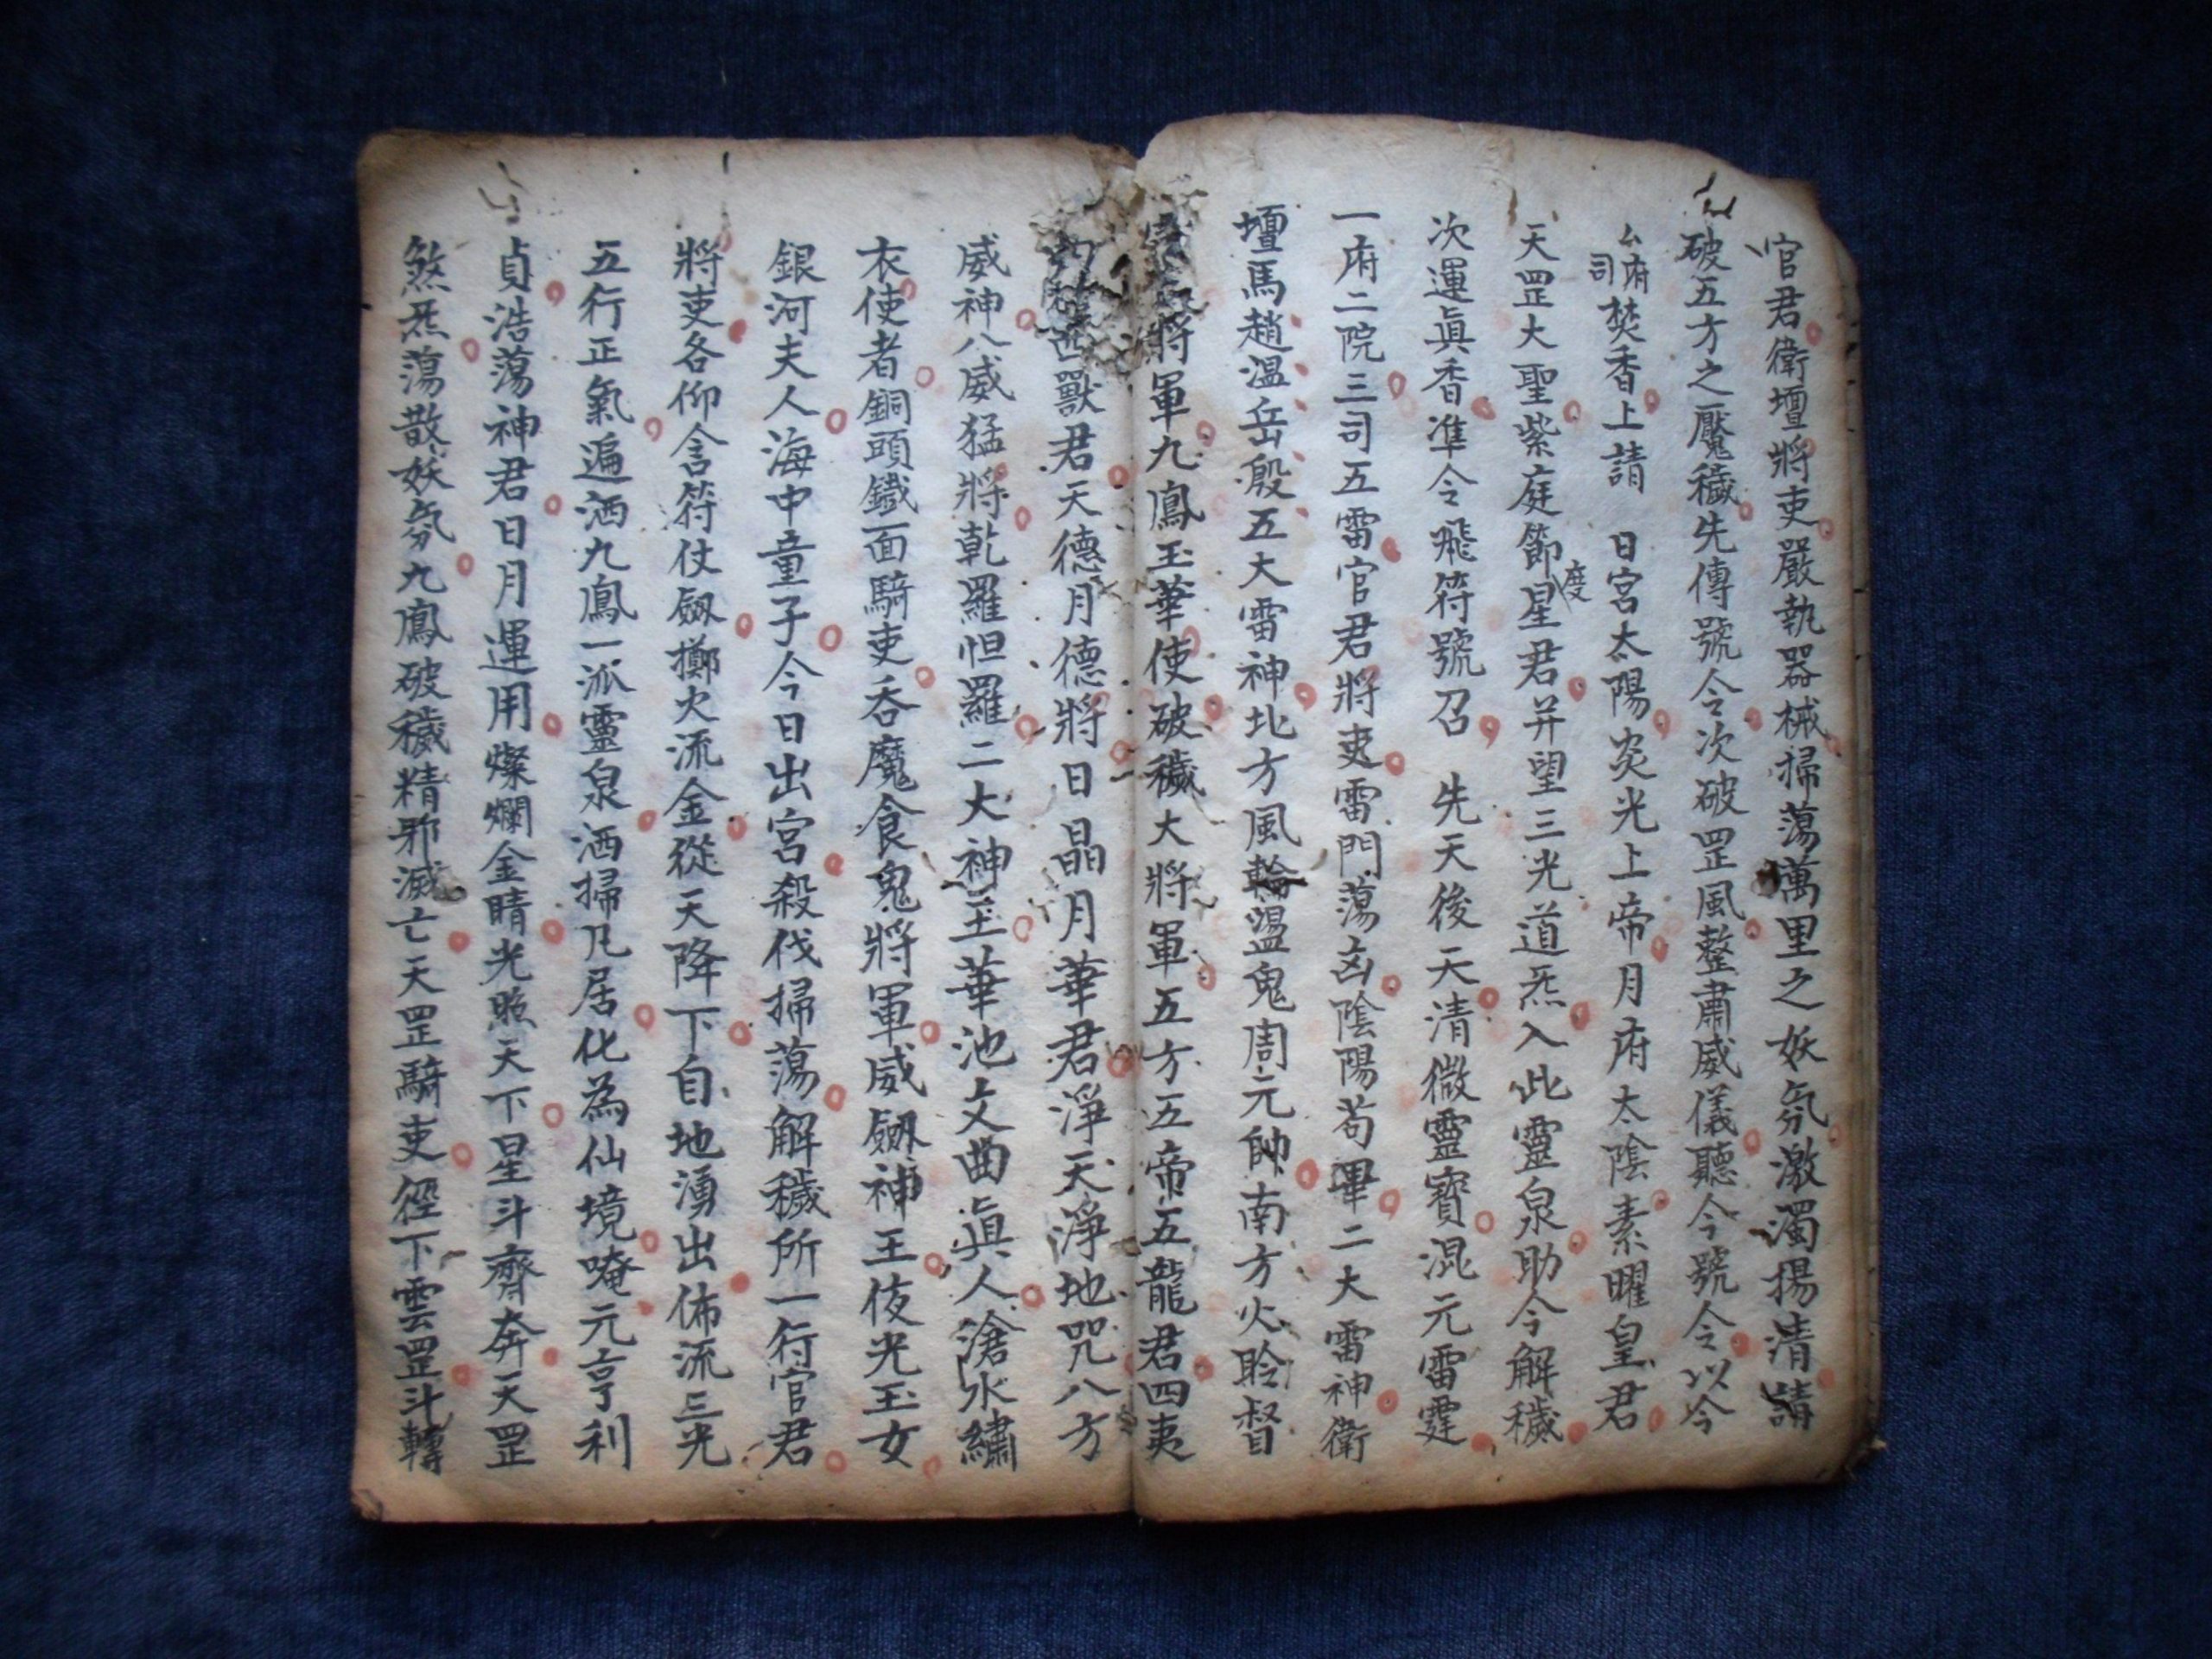 官君衛壇將吏嚴執器械掃蕩萬里之妖氛激濁揚清請
破五方之魘穢先傳號令次破罡風整肅威儀聽令號令以今
厶府司焚香上請 日宮太陽炎光上帝月府太陰素曜皇君
天罡大聖紫庭節度星君并望三光道炁入此靈泉助今解穢
次運眞香准令飛符號召 先天後天清微靈寶混元雷霆
一府二院三司五雷官君將吏雷門蕩凶陰陽苟畢二大雷神衛
壇馬趙溫岳殷五大雷神北方風輪盪鬼周元帥南方火聆督
將軍九鳳玉華使破穢大將軍五方五帝五龍君四夷
獸君天德月德將日晶月華君淨天淨地咒八方
威神八威猛將乾羅怛羅二大神王華池文曲眞人滄水繡
衣使者銅頭鐵面騎吏吞魔食鬼將軍威劔神王伎光玉女
銀河夫人海中童子今日出宮殺伐掃蕩解穢所一行官君
將吏各仰含符仗劔擲火流金從天降下自地湧出佈流三光
五行正氣遍洒九鳳一派靈泉洒掃凡居化為仙境唵元亨利
貞浩蕩神君日月運用燦爛金睛光照天下星斗齊奔天罡
煞炁蕩散妖氛九鳳破穢精邪滅亡天罡騎吏徑下雲罡斗轉